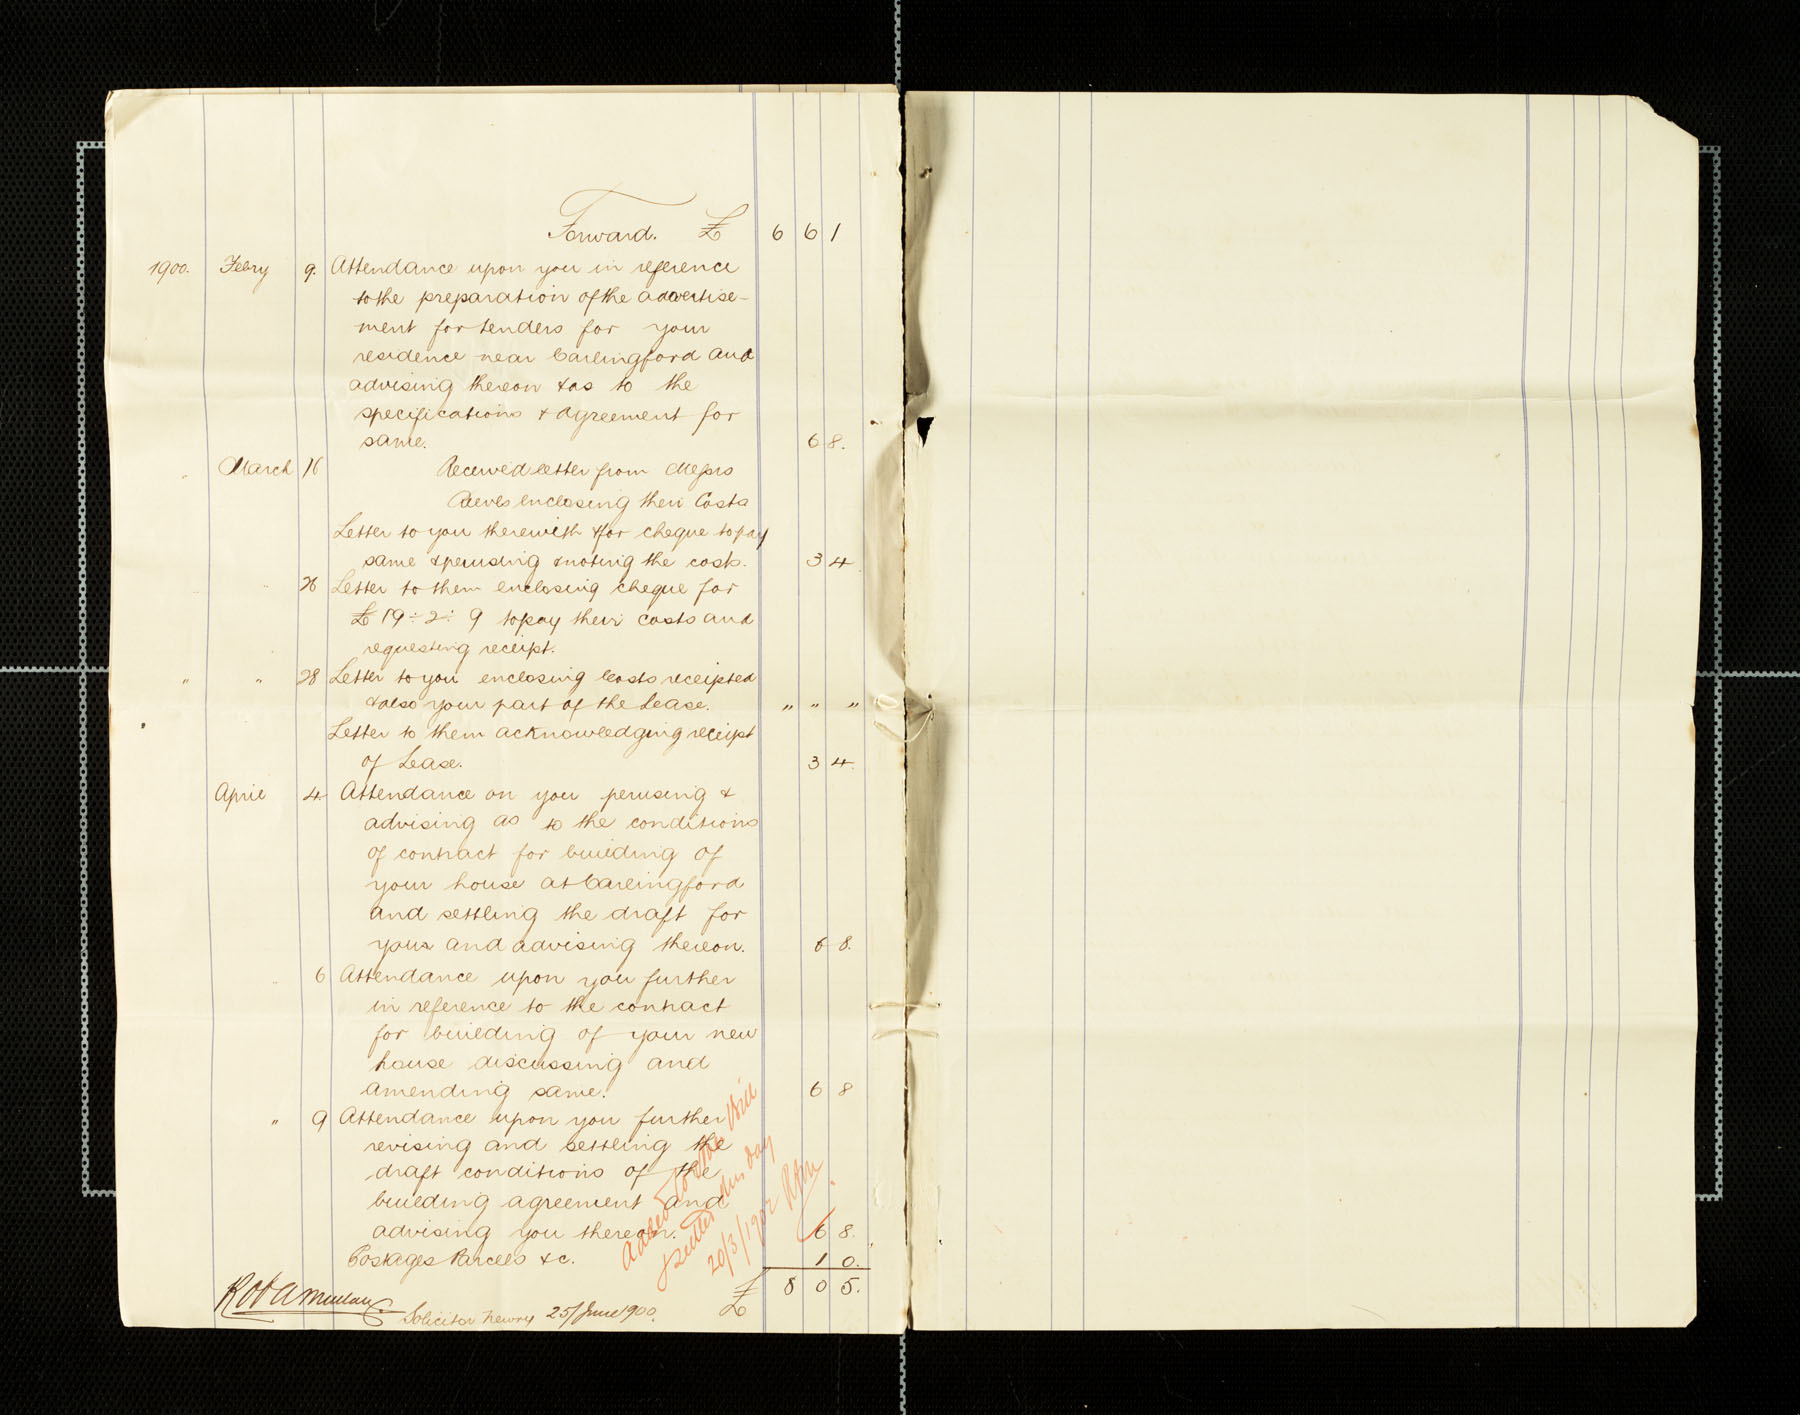 Forward. £ 6 6 1
1900. Febry 9. Attendance upon you in reference
to the preparation of the advertise-
ment for tenders for your
residence near Carlingford and
advising thereon & as to the
specifications & agreement for
same. 6 8.
" March 16 Received letter from Messrs
Reeves enclosing their Costs
Letter to you therewith & for cheque to pay
same & perusing & noting the costs. 3 4.
" 26 Letter to them enclosing cheque for
£19 ÷ 2 ÷ 9 to pay their costs and
requesting receipt.
" " 28 Letter to you enclosing Costs receipted
& also your part of the Lease. " " "
Letter to them acknowledging receipt
of Lease. 3 4.
April 4 Attendance on you perusing &
advising as to the conditions
of contract for building of
your house at Carlingford
and settling the draft for
your and advising thereon. 6 8.
" 6 Attendance upon you further
in reference to the contract
for building of your new
house discussing and
amending same. 6 8
" 9 Attendance upon you further
revising and settling the
draft conditions of the
building agreement and
advising you thereon. 6 8.
Postages Parcels &c. 1 0.
£ 8 0 5.
Solicitor Newry 25/June 1900.
Added to the Bill
& settled this day
20/3/1902